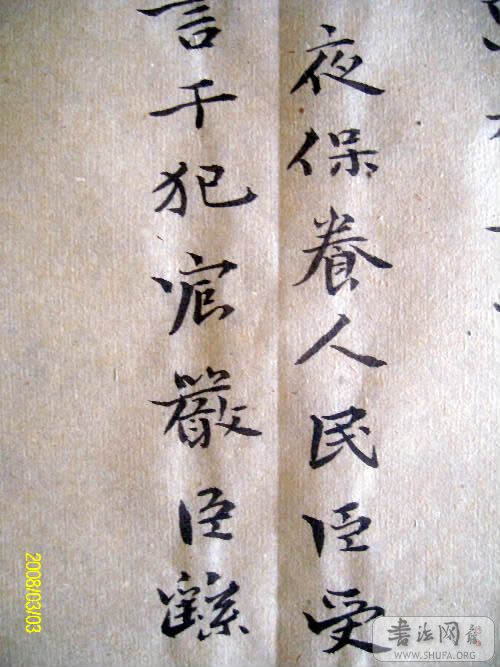 夜保養人民臣受
言干犯宸嚴臣繇
2008/03/03
书法网
WWW.SHUFA.ORG